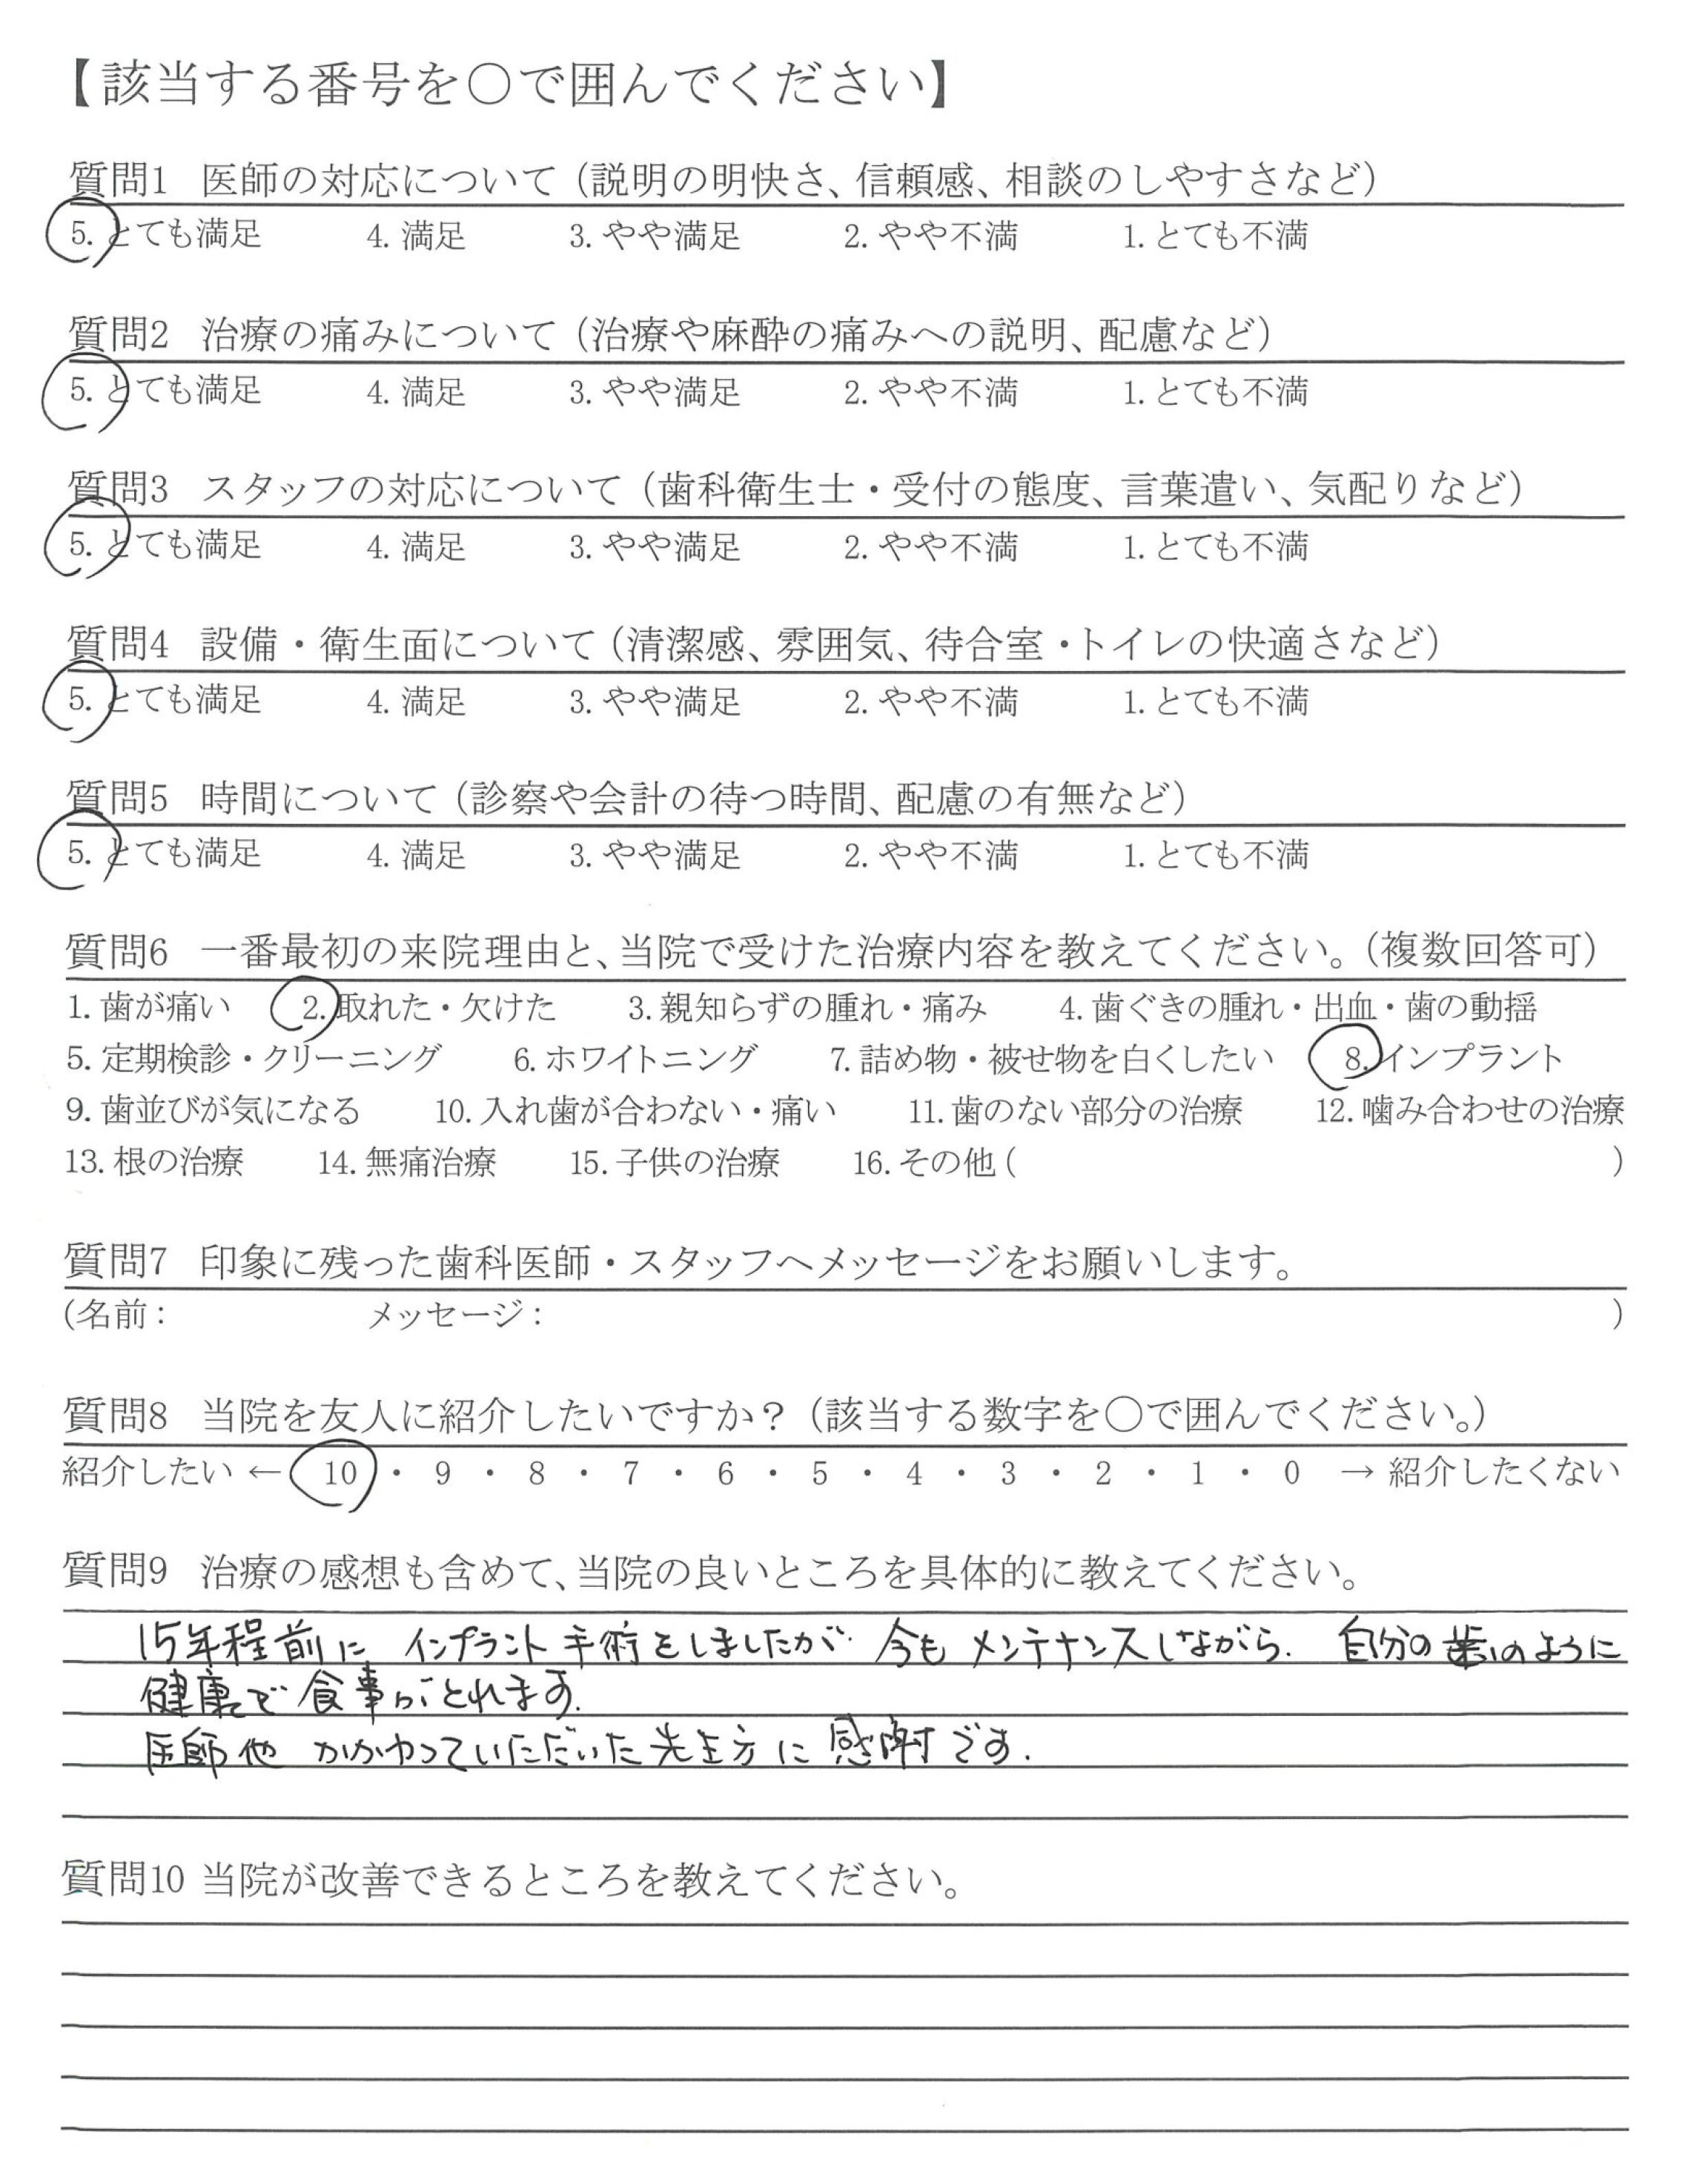 【該当する番号を○で囲んでください】
質問1 医師の対応について（説明の明快さ、信頼感、相談のしやすさなど）
5. とても満足 4. 満足 3. やや満足 2. やや不満 1. とても不満
質問2 治療の痛みについて（治療や麻酔の痛みへの説明、配慮など）
5. とても満足 4. 満足 3. やや満足 2. やや不満 1. とても不満
質問3 スタッフの対応について（歯科衛生士・受付の態度、言葉遣い、気配りなど）
5. とても満足 4. 満足 3. やや満足 2. やや不満 1. とても不満
質問4 設備・衛生面について（清潔感、雰囲気、待合室・トイレの快適さなど）
5. とても満足 4. 満足 3. やや満足 2. やや不満 1. とても不満
質問5 時間について（診察や会計の待つ時間、配慮の有無など）
5. とても満足 4. 満足 3. やや満足 2. やや不満 1. とても不満
質問6 一番最初の来院理由と、当院で受けた治療内容を教えてください。（複数回答可）
1. 歯が痛い 2. 取れた・欠けた 3. 親知らずの腫れ・痛み 4. 歯ぐきの腫れ・出血・歯の動揺
5. 定期検診・クリーニング 6. ホワイトニング 7. 詰め物・被せ物を白くしたい 8. インプラント
9. 歯並びが気になる 10. 入れ歯が合わない・痛い 11. 歯のない部分の治療 12. 噛み合わせの治療
13. 根の治療 14. 無痛治療 15. 子供の治療 16. その他（ ）
質問7 印象に残った歯科医師・スタッフへメッセージをお願いします。
（名前： メッセージ： ）
質問8 当院を友人に紹介したいですか？（該当する数字を○で囲んでください。）
紹介したい ← 10 ・ 9 ・ 8 ・ 7 ・ 6 ・ 5 ・ 4 ・ 3 ・ 2 ・ 1 ・ 0 → 紹介したくない
質問9 治療の感想も含めて、当院の良いところを具体的に教えてください。
15年程前に インプラント手術をしましたが 今も メンテナンスしながら. 自分の歯のように
健康で食事がとれます.
医師他 かかわっていただいた先生方に感謝です.
質問10 当院が改善できるところを教えてください。